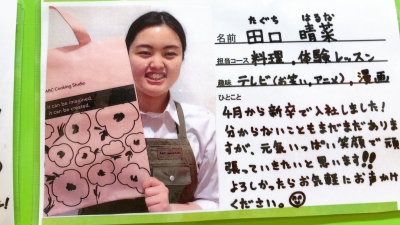 ABC Cooking Studio
it can be imagined,
it can be created.
たぐち はるな
名前 田口 晴菜
担当コース 料理、体験レッスン
趣味 テレビ(お笑い、アニメ)、漫画
ひとこと
4月から新卒で入社しました!
分からないこともまだまだありま
すが、元気いっぱい笑顔で頑
張っていきたいと思います!!
よろしかったらお気軽にお声かけ
ください。